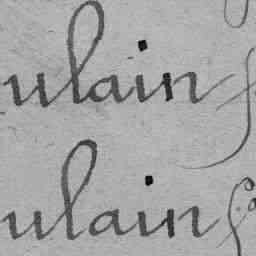 ulain
ulain